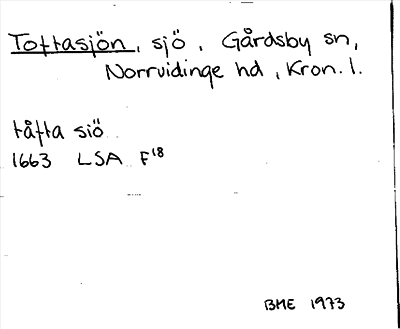 Toftasjön, sjö, Gårdsby sn,
Norrvidinge hd, Kron. l.
tåfta siö
1663 LSA F18
BME 1973